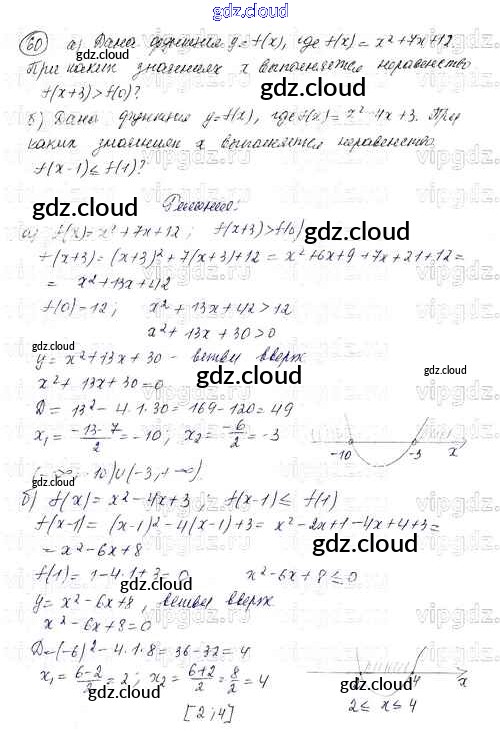 gdz.cloud
60) а) Дана функция y=f(x), где f(x) = x²+7x+12.
При каких значениях x выполняется неравенство
f(x+3)>f(0)?
gdz.cloud
б) Дана функция y=f(x), где f(x)= x²-4x+3. При
каких значениях x выполняется неравенство
f(x-1)≤f(1)?
gdz.cloud
Решение:
gdz.cloud gdz.cloud
а) f(x)=x²+7x+12; f(x+3)>f(0)
f(x+3)= (x+3)²+7(x+3)+12 = x²+6x+9+7x+21+12=
= x²+13x+42
gdz.cloud
f(0)=12; x²+13x+42>12
x²+13x+30>0
gdz.cloud
y= x²+13x+30 - ветви вверх
gdz.cloud
x²+13x+30=0
D= 13²-4·1·30=169-120=49
gdz.cloud
x₁= (-13-7)/2 =-10; x₂= -6/2 = -3
-10 -3 x
(-∞; -10)∪(-3;+∞)
gdz.cloud
б) f(x)= x²-4x+3; f(x-1)≤ f(1)
f(x-1)= (x-1)²-4(x-1)+3= x²-2x+1-4x+4+3=
gdz.cloud
= x²-6x+8
gdz.cloud
f(1)=1-4·1+3=0 x²-6x+8≤0
gdz.cloud
y= x²-6x+8, ветви вверх
x²-6x+8=0
gdz.cloud
D=(-6)²-4·1·8=36-32=4
gdz.cloud
x₁= (6-2)/2 =2; x₂= (6+2)/2 = 8/2 = 4
gdz.cloud
2 4 x
2≤ x≤4
[2;4]